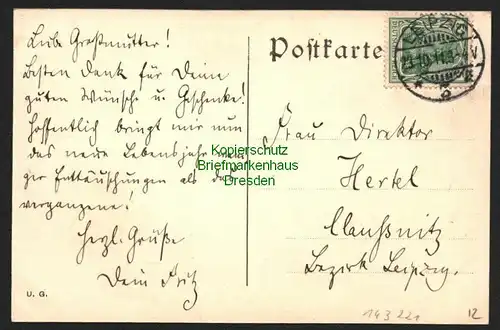 Liebe Großmutter!
Besten Dank für Deine
guten Wünsche u. Geschenke!
Hoffentlich bringt mir nun
das neue Lebensjahr weni-
ger Enttäuschungen als das
vergangene!
Herzl. Grüße
Dein Fritz
U. G.
Postkarte
LEIPZIG
23.10.11
Frau Direktor
Hertel
Claußnitz
Bezirk Leipzig.
Kopierschutz
Briefmarkenhaus
Dresden
143 221
12